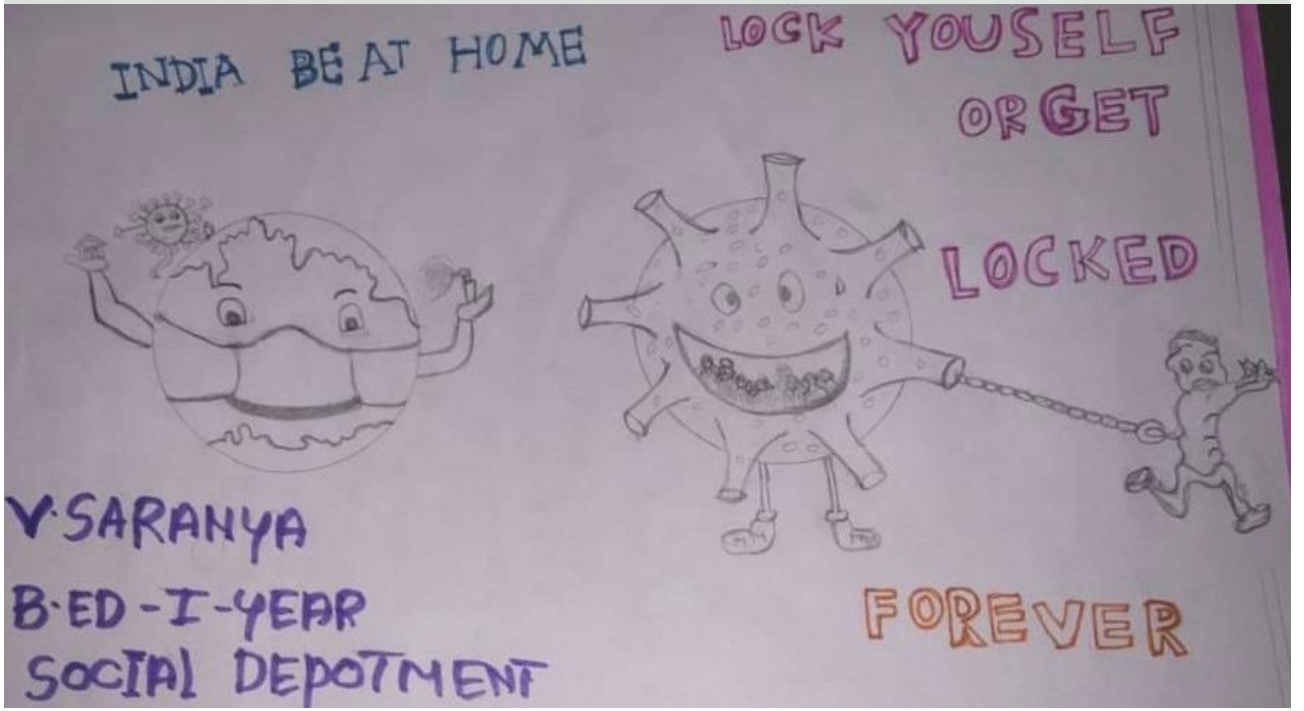 INDIA BE AT HOME
LOCK YOUSELF
OR GET
LOCKED
FOREVER
V.SARANYA
B.ED-I-YEAR
SOCIAL DEPOTMENT